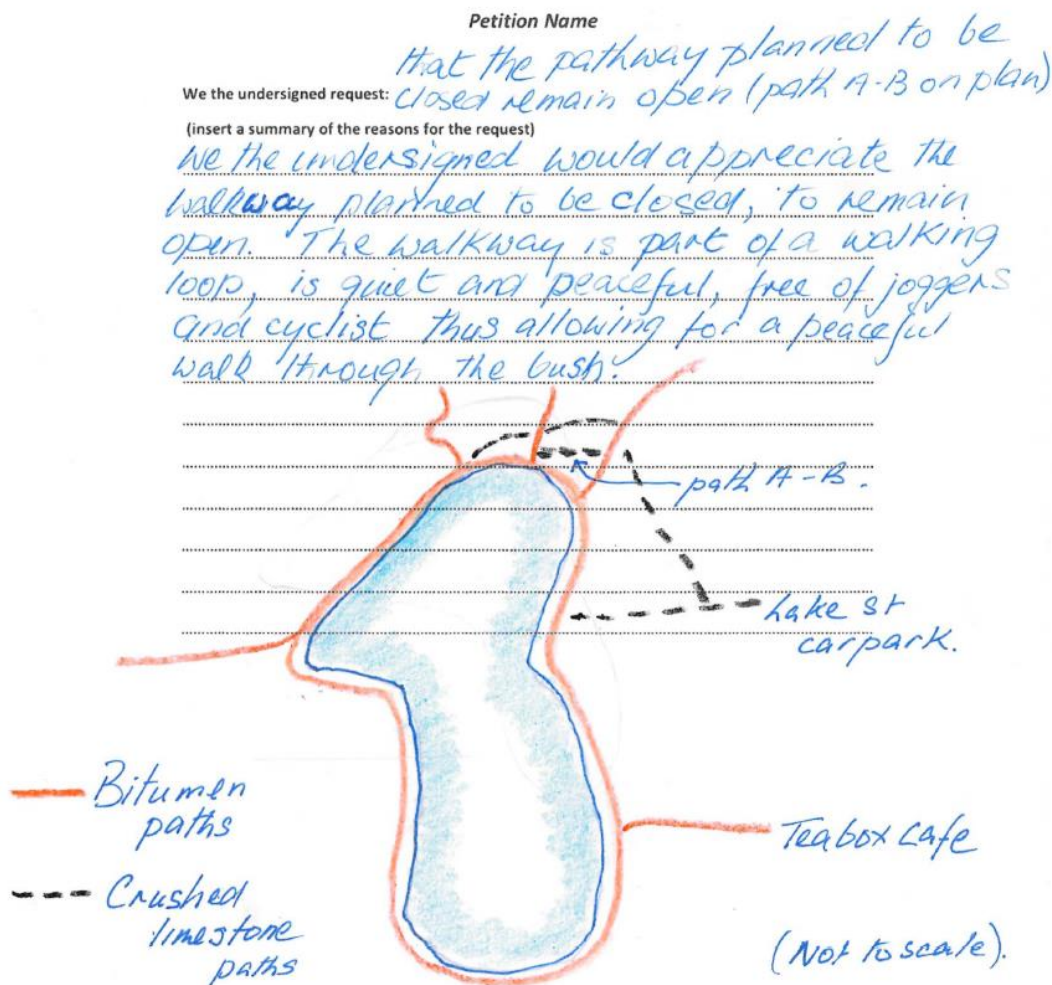 Petition Name
that the pathway planned to be
We the undersigned request: closed remain open (path A-B on plan)
(insert a summary of the reasons for the request)
We the undersigned would appreciate the
walkway planned to be closed, to remain
open. The walkway is part of a walking
loop, is quiet and peaceful, free of joggers
and cyclist thus allowing for a peaceful
walk through the bush.
path A-B.
Lake St
carpark.
Bitumen
paths
Teabox Cafe
Crushed
limestone
paths
(Not to scale).